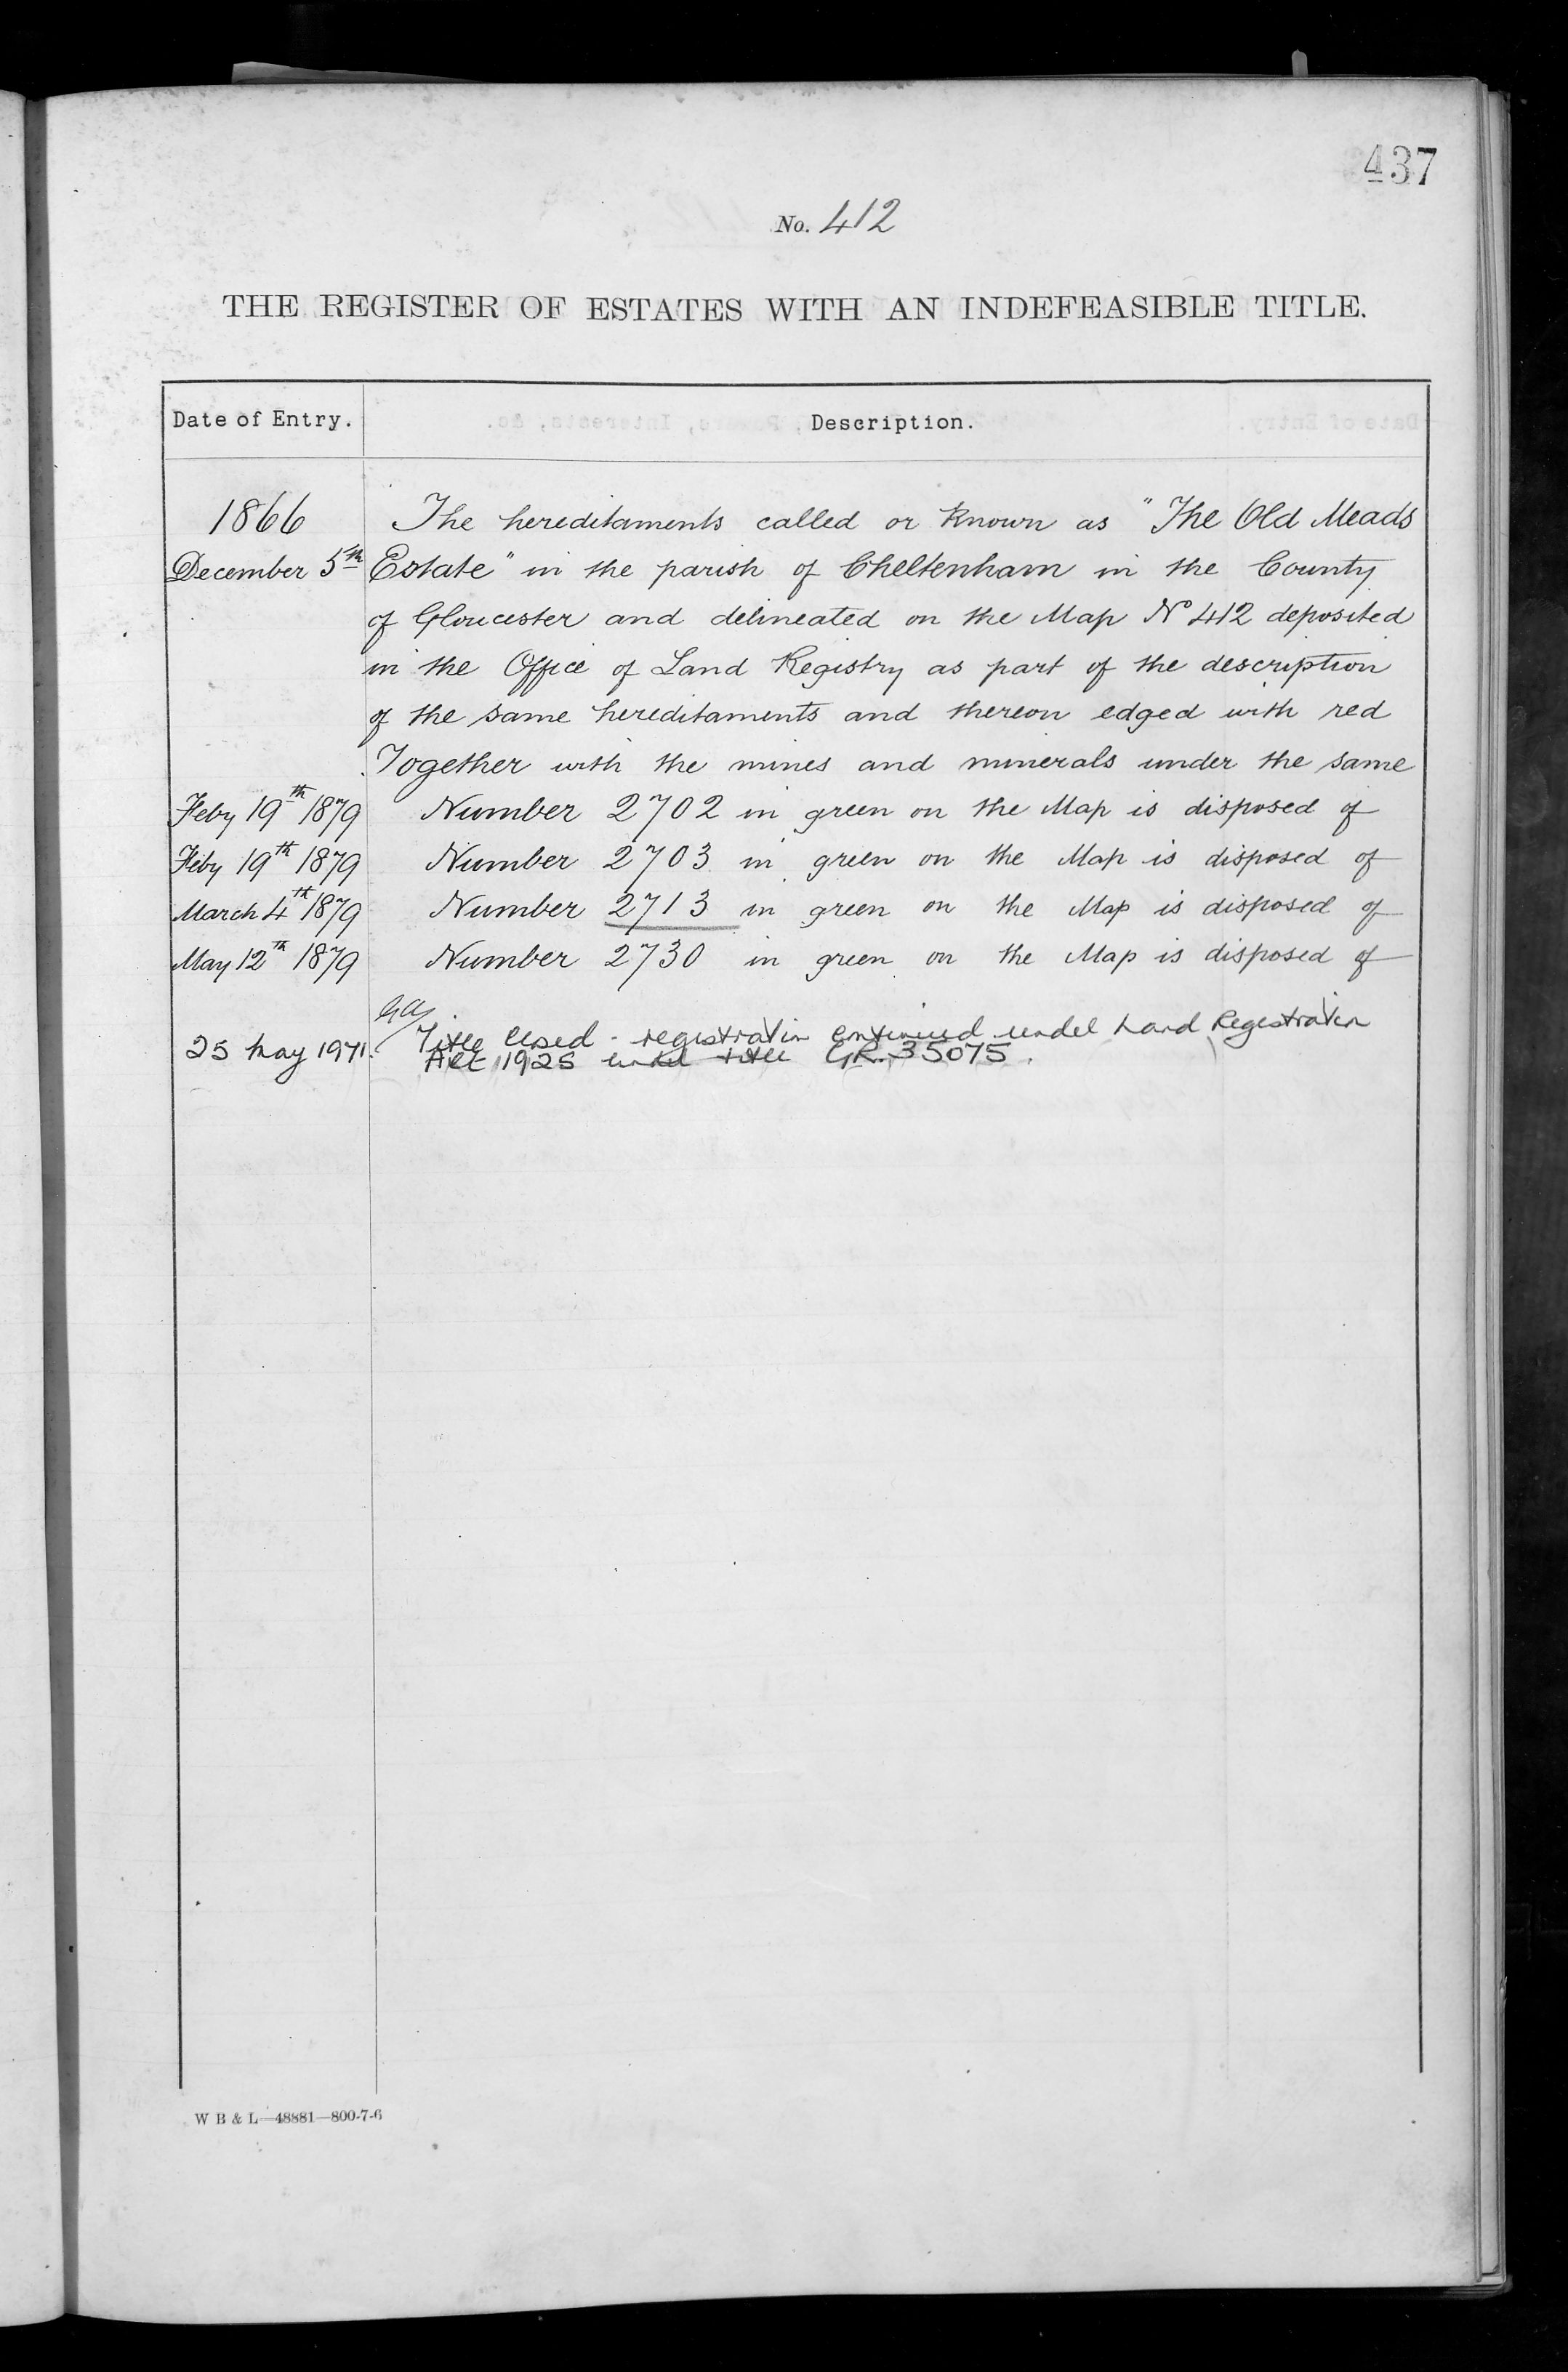 437
No. 412
THE REGISTER OF ESTATES WITH AN INDEFEASIBLE TITLE.
Date of Entry. Description.
1866 The hereditaments called or known as "The Old Meads
December 5th Estate" in the parish of Cheltenham in the County
of Gloucester and delineated on the Map No 412 deposited
in the Office of Land Registry as part of the description
of the same hereditaments and thereon edged with red
Together with the mines and minerals under the same
Feby 19th 1879 Number 2702 in green on the Map is disposed of
Feby 19th 1879 Number 2703 in green on the Map is disposed of
March 4th 1879 Number 2713 in green on the Map is disposed of
May 12th 1879 Number 2730 in green on the Map is disposed of
25 May 1971. Title closed - registration continued under Land Registration
Act 1925 under title GR. 35075.
W B & L—48881—800-7-6